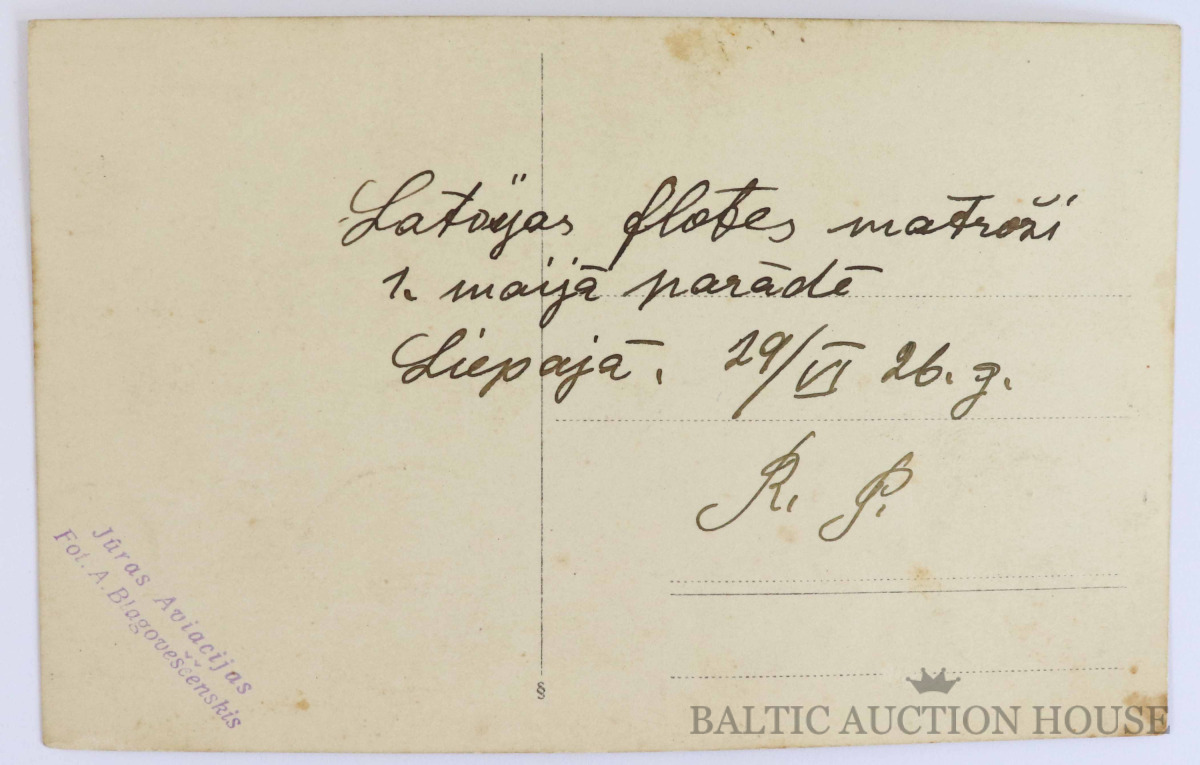 Latvijas flotes matroži
1. maijā parādē
Liepajā. 29/VI 26. g.
R. P.
Jūras Aviacijas
Fot. A. Blagoveščenskis
§
BALTIC AUCTION HOUSE